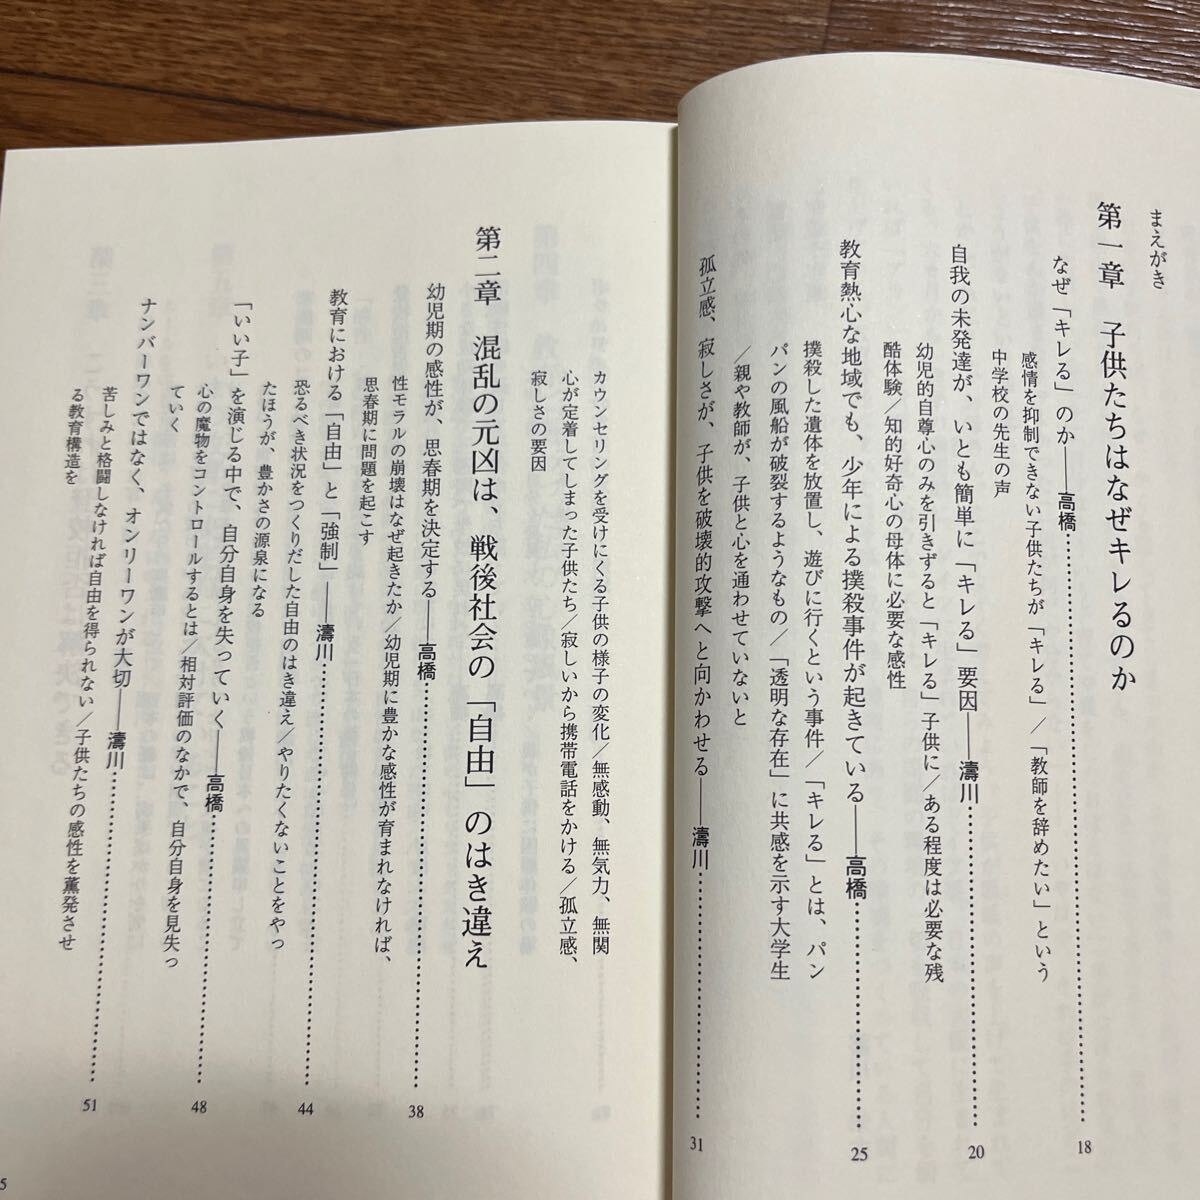 まえがき
第一章　子供たちはなぜキレるのか
なぜ「キレる」のか――高橋……………………18
感情を抑制できない子供たちが「キレる」／「教師を辞めたい」という
中学校の先生の声
自我の未発達が、いとも簡単に「キレる」要因――濤川……………………20
幼児的自尊心のみを引きずると「キレる」子供に／ある程度は必要な残
酷体験／知的好奇心の母体に必要な感性
教育熱心な地域でも、少年による撲殺事件が起きている――高橋……………………25
撲殺した遺体を放置し、遊びに行くという事件／「キレる」とは、パン
パンの風船が破裂するようなもの／「透明な存在」に共感を示す大学生
／親や教師が、子供と心を通わせていないと
孤立感、寂しさが、子供を破壊的攻撃へと向かわせる――濤川……………………31
カウンセリングを受けにくる子供の様子の変化／無感動、無気力、無関
心が定着してしまった子供たち／寂しいから携帯電話をかける／孤立感、
寂しさの要因
第二章　混乱の元凶は、戦後社会の「自由」のはき違え
幼児期の感性が、思春期を決定する――高橋……………………38
性モラルの崩壊はなぜ起きたか／幼児期に豊かな感性が育まれなければ、
思春期に問題を起こす
教育における「自由」と「強制」――濤川……………………44
恐るべき状況をつくりだした自由のはき違え／やりたくないことをやっ
たほうが、豊かさの源泉になる
「いい子」を演じる中で、自分自身を失っていく――高橋……………………48
心の魔物をコントロールするとは／相対評価のなかで、自分自身を見失っ
ていく
ナンバーワンではなく、オンリーワンが大切――濤川……………………51
苦しみと格闘しなければ自由を得られない／子供たちの感性を薫発させ
る教育構造を
5